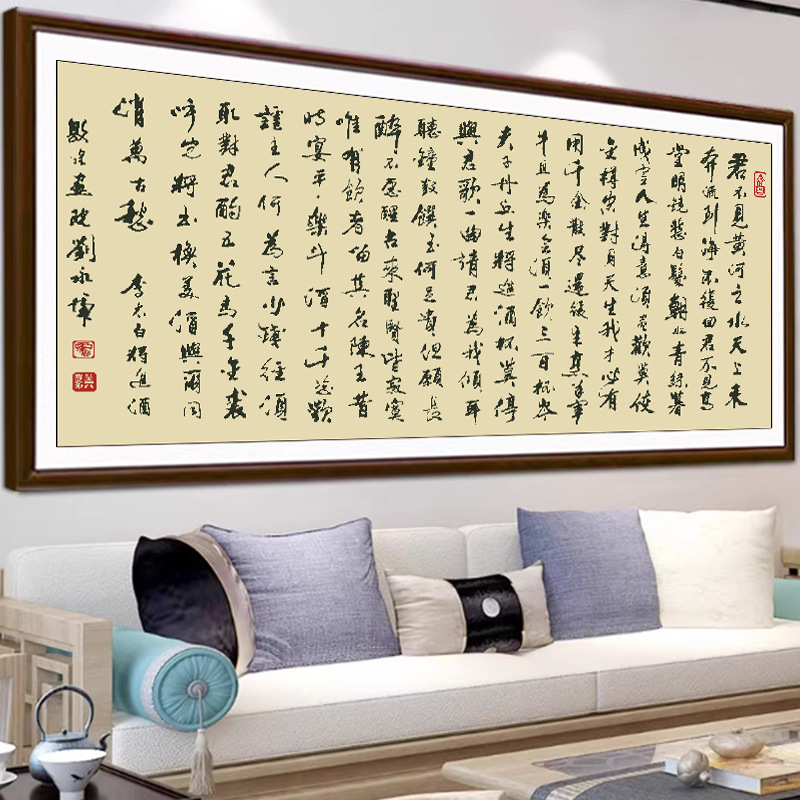 君不見黃河之水天上来
奔流到海不復回君不見高
堂明鏡悲白髮朝如青絲暮
成雪人生得意須盡歡莫使
金樽空對月天生我才必有
用千金散尽還復来烹羊宰
牛且為樂会須一飲三百杯岑
夫子丹丘生將進酒杯莫停
與君歌一曲請君為我傾耳
聽鐘鼓饌玉何足貴但願長
醉不愿醒古來聖賢皆寂寞
唯有飲者留其名陳王昔
时宴平樂斗酒十千恣歡
謔主人何為言少錢徑須
取對君酌五花馬千金裘
呼兒將出換美酒與爾同
消萬古愁 李太白將進酒
敦煌画院劉永